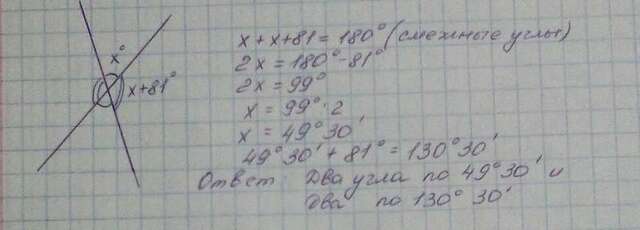 x°
x+81°
x + x + 81 = 180° (смежные углы)
2x = 180° - 81°
2x = 99°
x = 99° : 2
x = 49° 30'
49° 30' + 81° = 130° 30'
Ответ: Два угла по 49° 30' и
два по 130° 30'